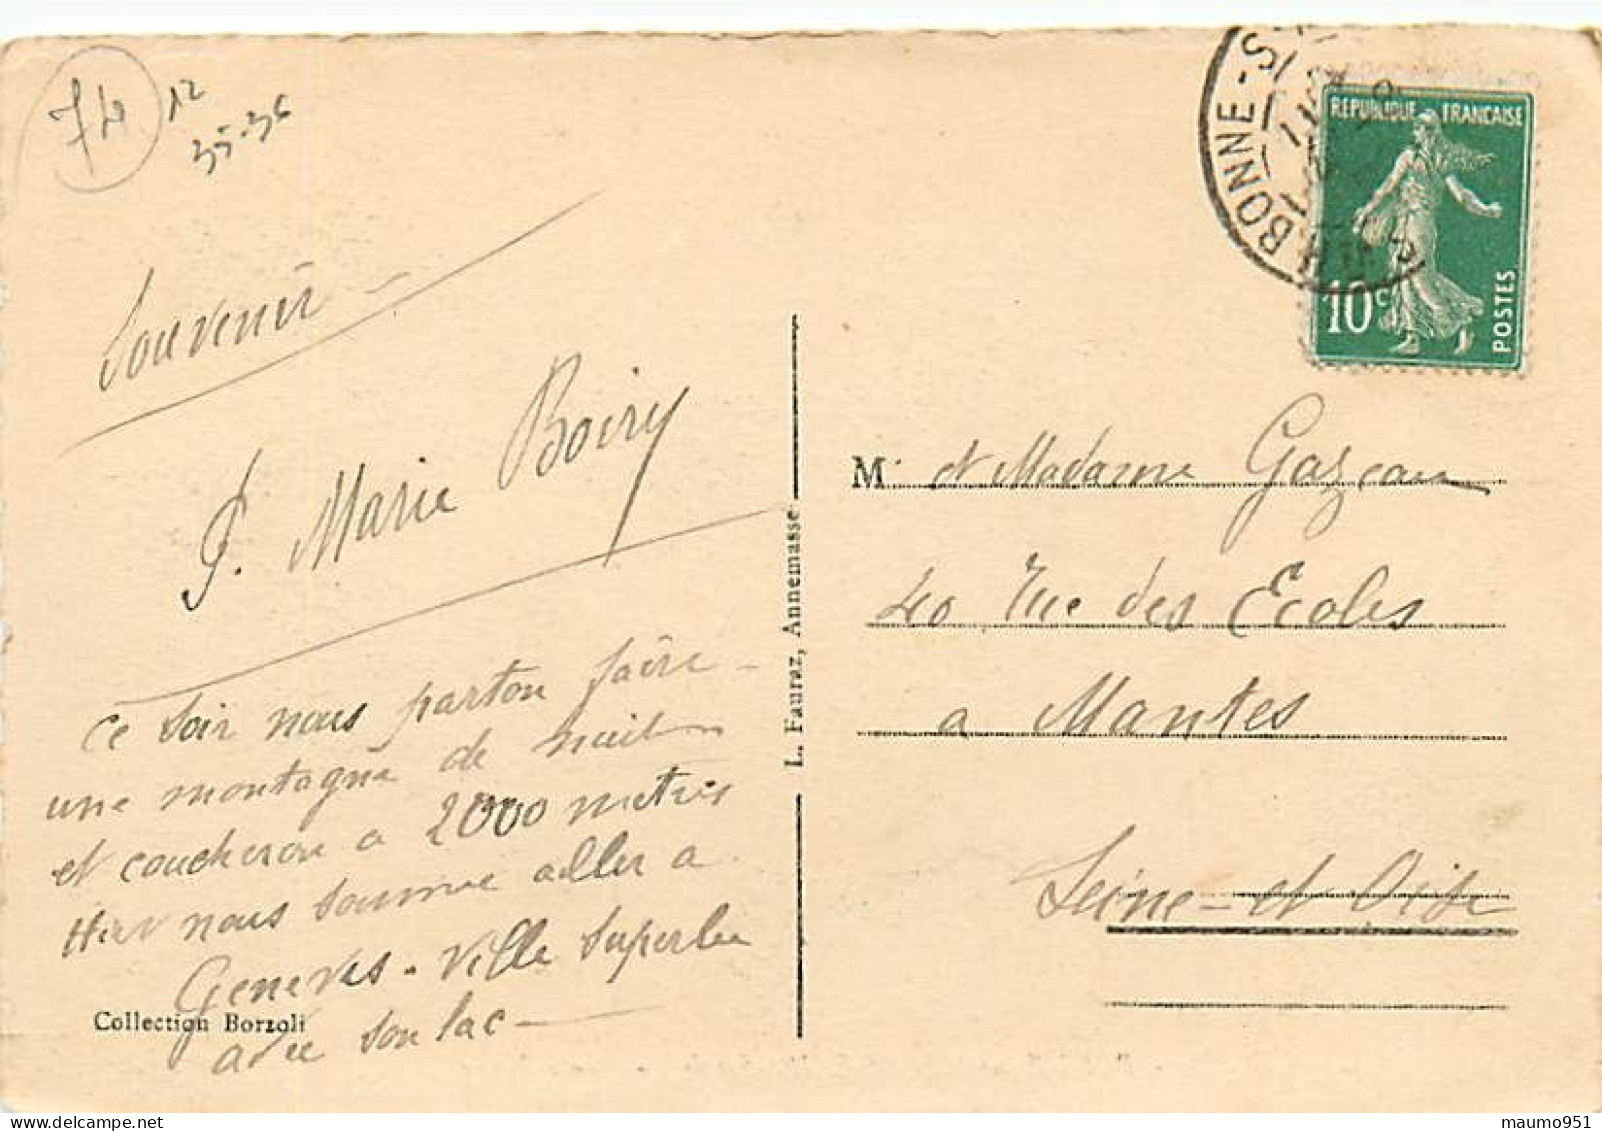 74
12
35-36
BONNE-S
REPUBLIQUE FRANCAISE
10c
POSTES
Souvenir -
P. Marie Boiry
ce soir nous parton faire -
une montagne de nuit
et coucheron a 2000 metres
Hier nous somme aller a
Geneves - ville superbe
avec son lac -
Collection Borzoli
L. Fauraz, Annemasse
M. et Madame Gazeau
40 rue des Ecoles
a Mantes
Seine-et Oise
maumo951